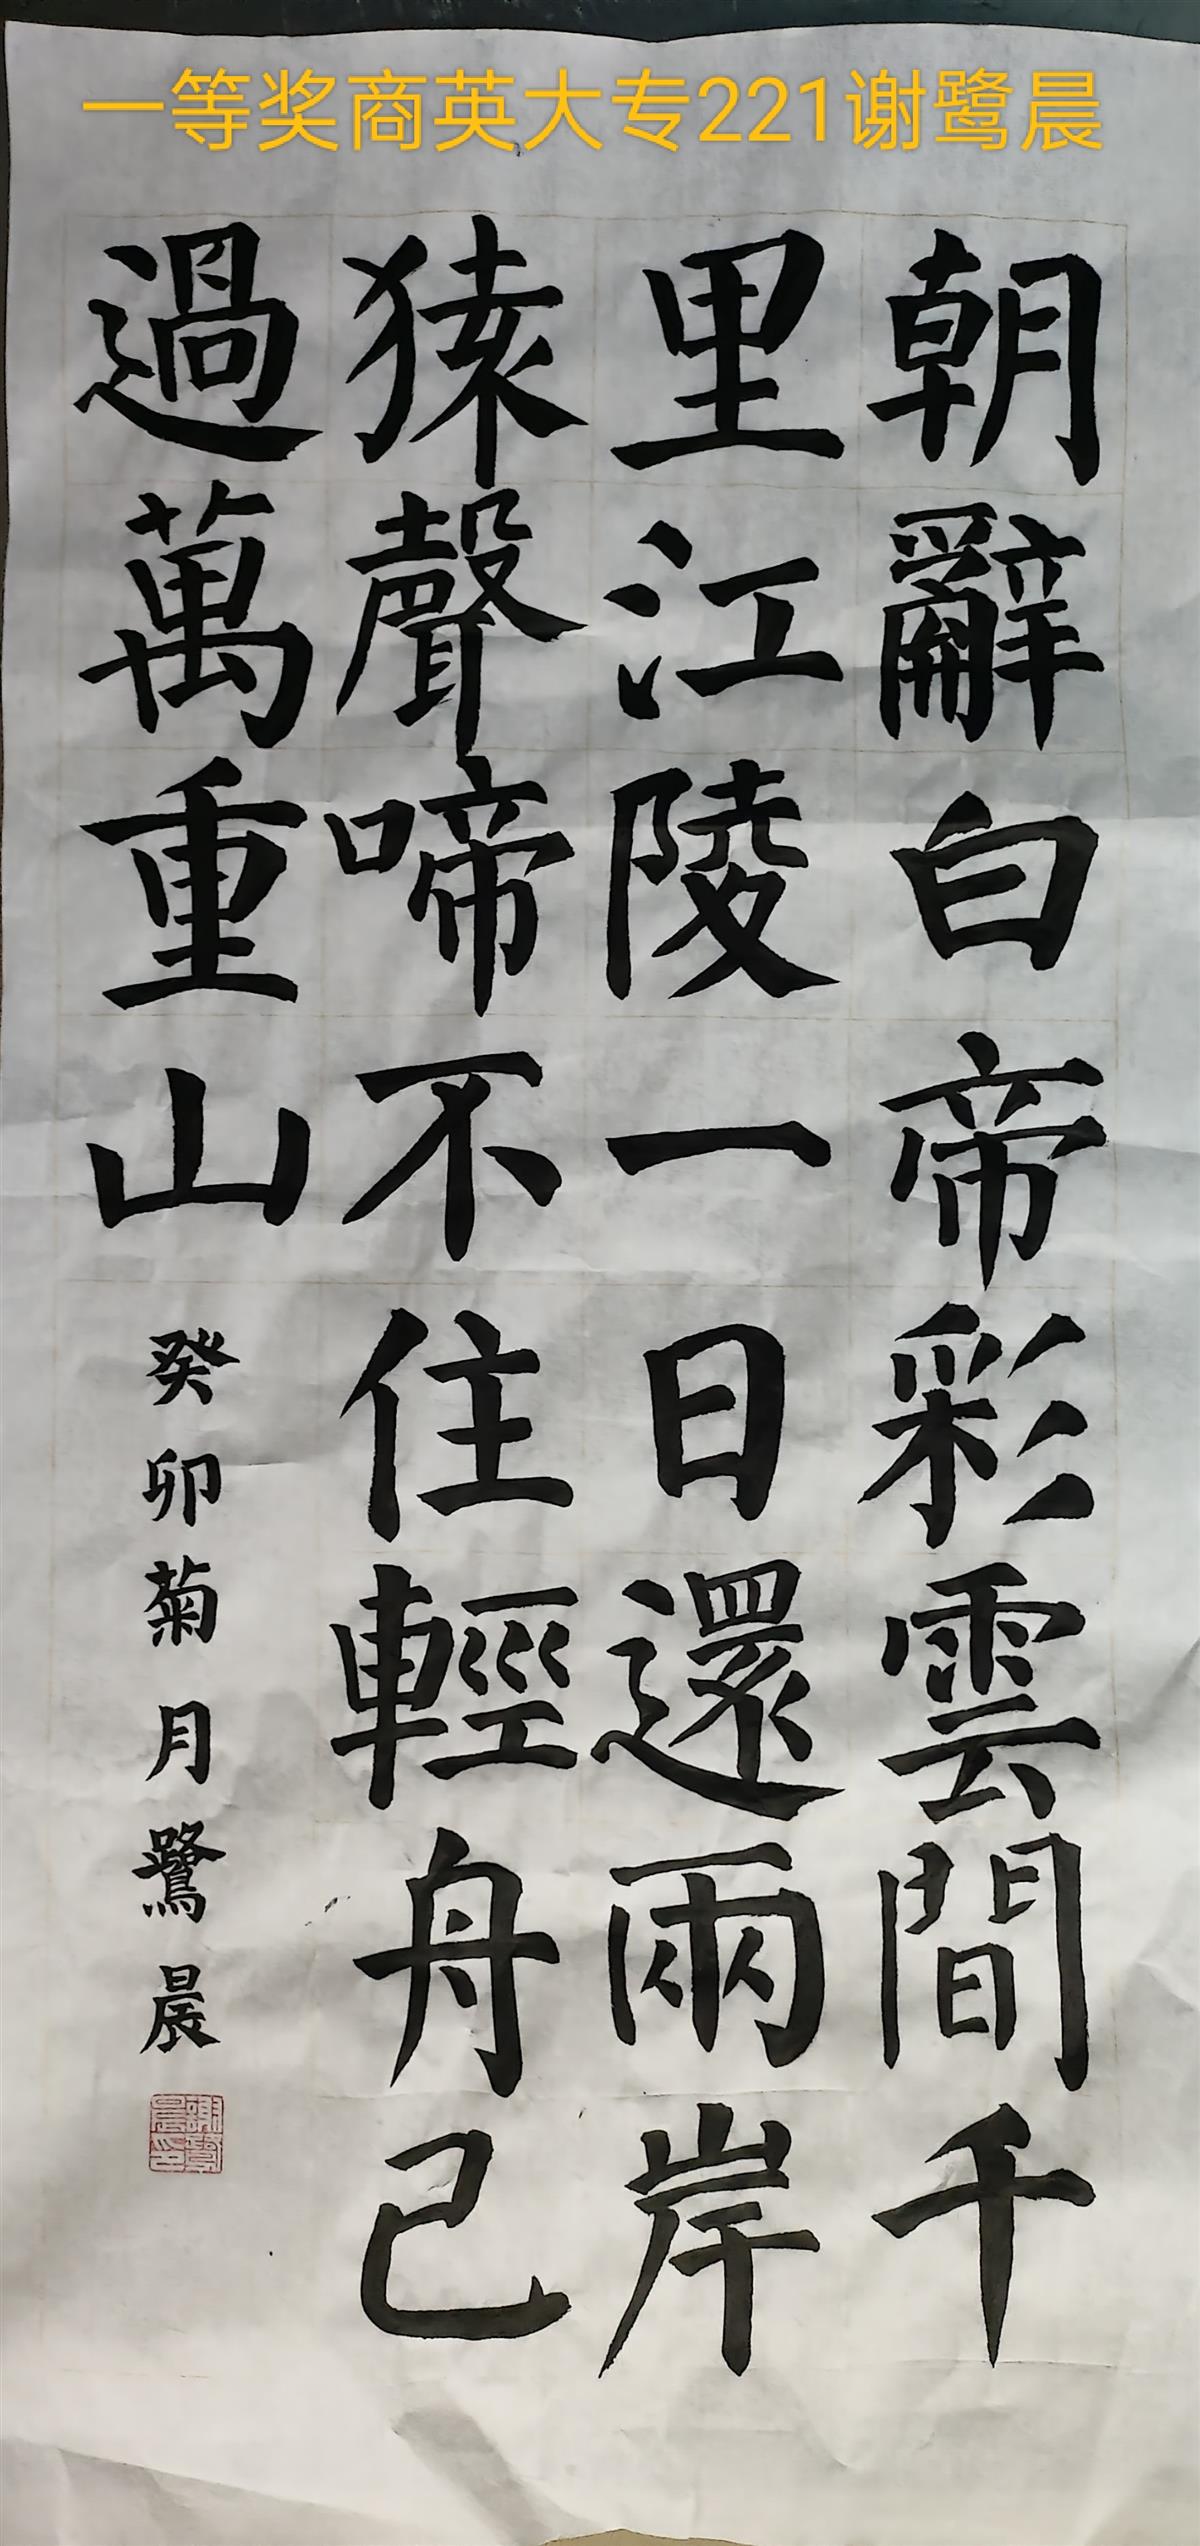 一等奖商英大专221谢鹭晨
朝辭白帝彩雲間千
里江陵一日還兩岸
猿聲啼不住輕舟已
過萬重山
癸卯菊月鷺晨